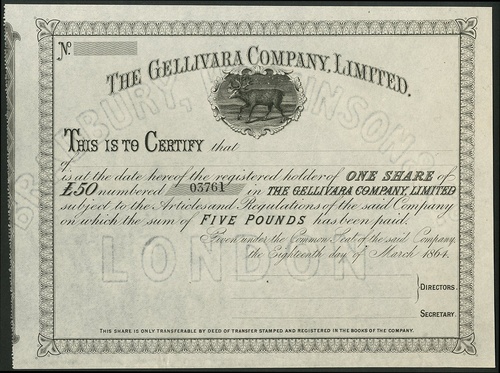 No.
THE GELLIVARA COMPANY, LIMITED.
THIS IS TO CERTIFY that
of
is at the date hereof the registered holder of ONE SHARE of
£50 numbered 03761 in THE GELLIVARA COMPANY, LIMITED
subject to the Articles and Regulations of the said Company
on which the sum of FIVE POUNDS has been paid.
Given under the Common Seal of the said Company.
the Eighteenth day of March 1864.
DIRECTORS.
SECRETARY.
THIS SHARE IS ONLY TRANSFERABLE BY DEED OF TRANSFER STAMPED AND REGISTERED IN THE BOOKS OF THE COMPANY.
LONDON